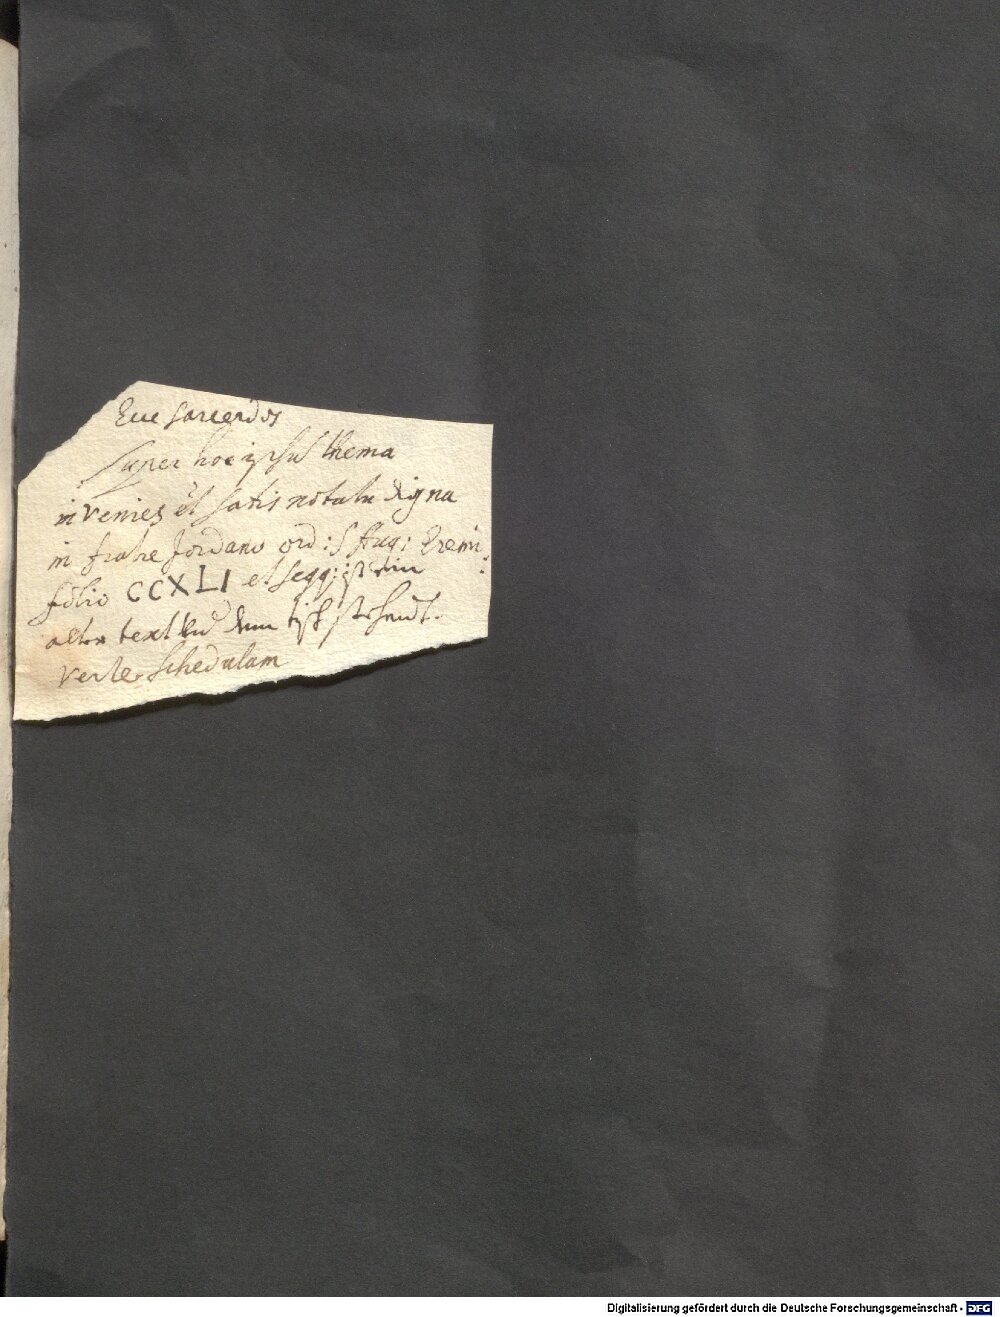 Ecce sacerdos
super hoc ipsum thema
invenies et satis notatu digna
in fratre Jordano ord: S Aug: Eremi:
folio CCXLI et seqq: ist ein
alter text und dem tisch stehendt.
verte schedulam
Digitalisierung gefördert durch die Deutsche Forschungsgemeinschaft - DFG